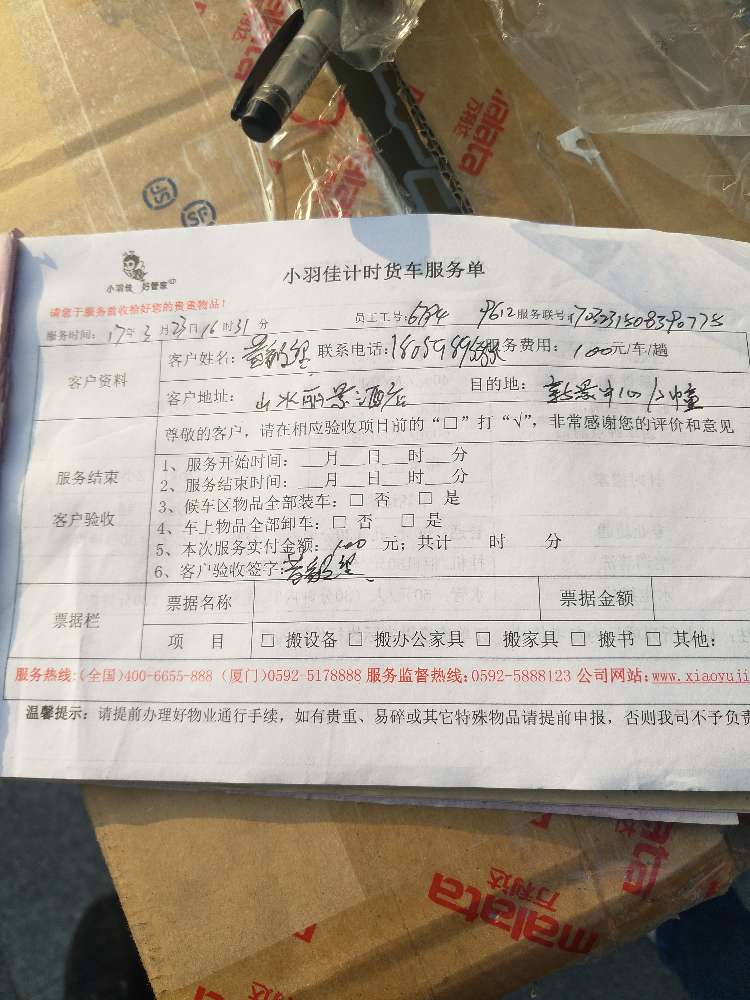 malata
万利达
malata
万利达
小羽佳 好管家
小羽佳计时货车服务单
请您于服务前收拾好您的贵重物品!
服务时间: 17年3月23日16时31分 员工工号: 服务联号:
客户资料
客户姓名: 联系电话: 服务费用: 100元/车/趟
客户地址: 山水丽景酒店 目的地:
尊敬的客户, 请在相应验收项目前的“□”打“√”, 非常感谢您的评价和意见
服务结束
客户验收
1、服务开始时间: __月__日__时__分
2、服务结束时间: __月__日__时__分
3、候车区物品全部装车: □ 否 □ 是
4、车上物品全部卸车: □ 否 □ 是
5、本次服务实付金额: 100 元; 共计 时 分
6、客户验收签字:
票据栏
票据名称 票据金额
项 目 □ 搬设备 □ 搬办公家具 □ 搬家具 □ 搬书 □ 其他:
服务热线:(全国)400-6655-888 (厦门)0592-5178888 服务监督热线:0592-5888123 公司网站:www.xiaoyuji
温馨提示: 请提前办理好物业通行手续, 如有贵重、易碎或其它特殊物品请提前申报, 否则我司不予负责
malata
万利达